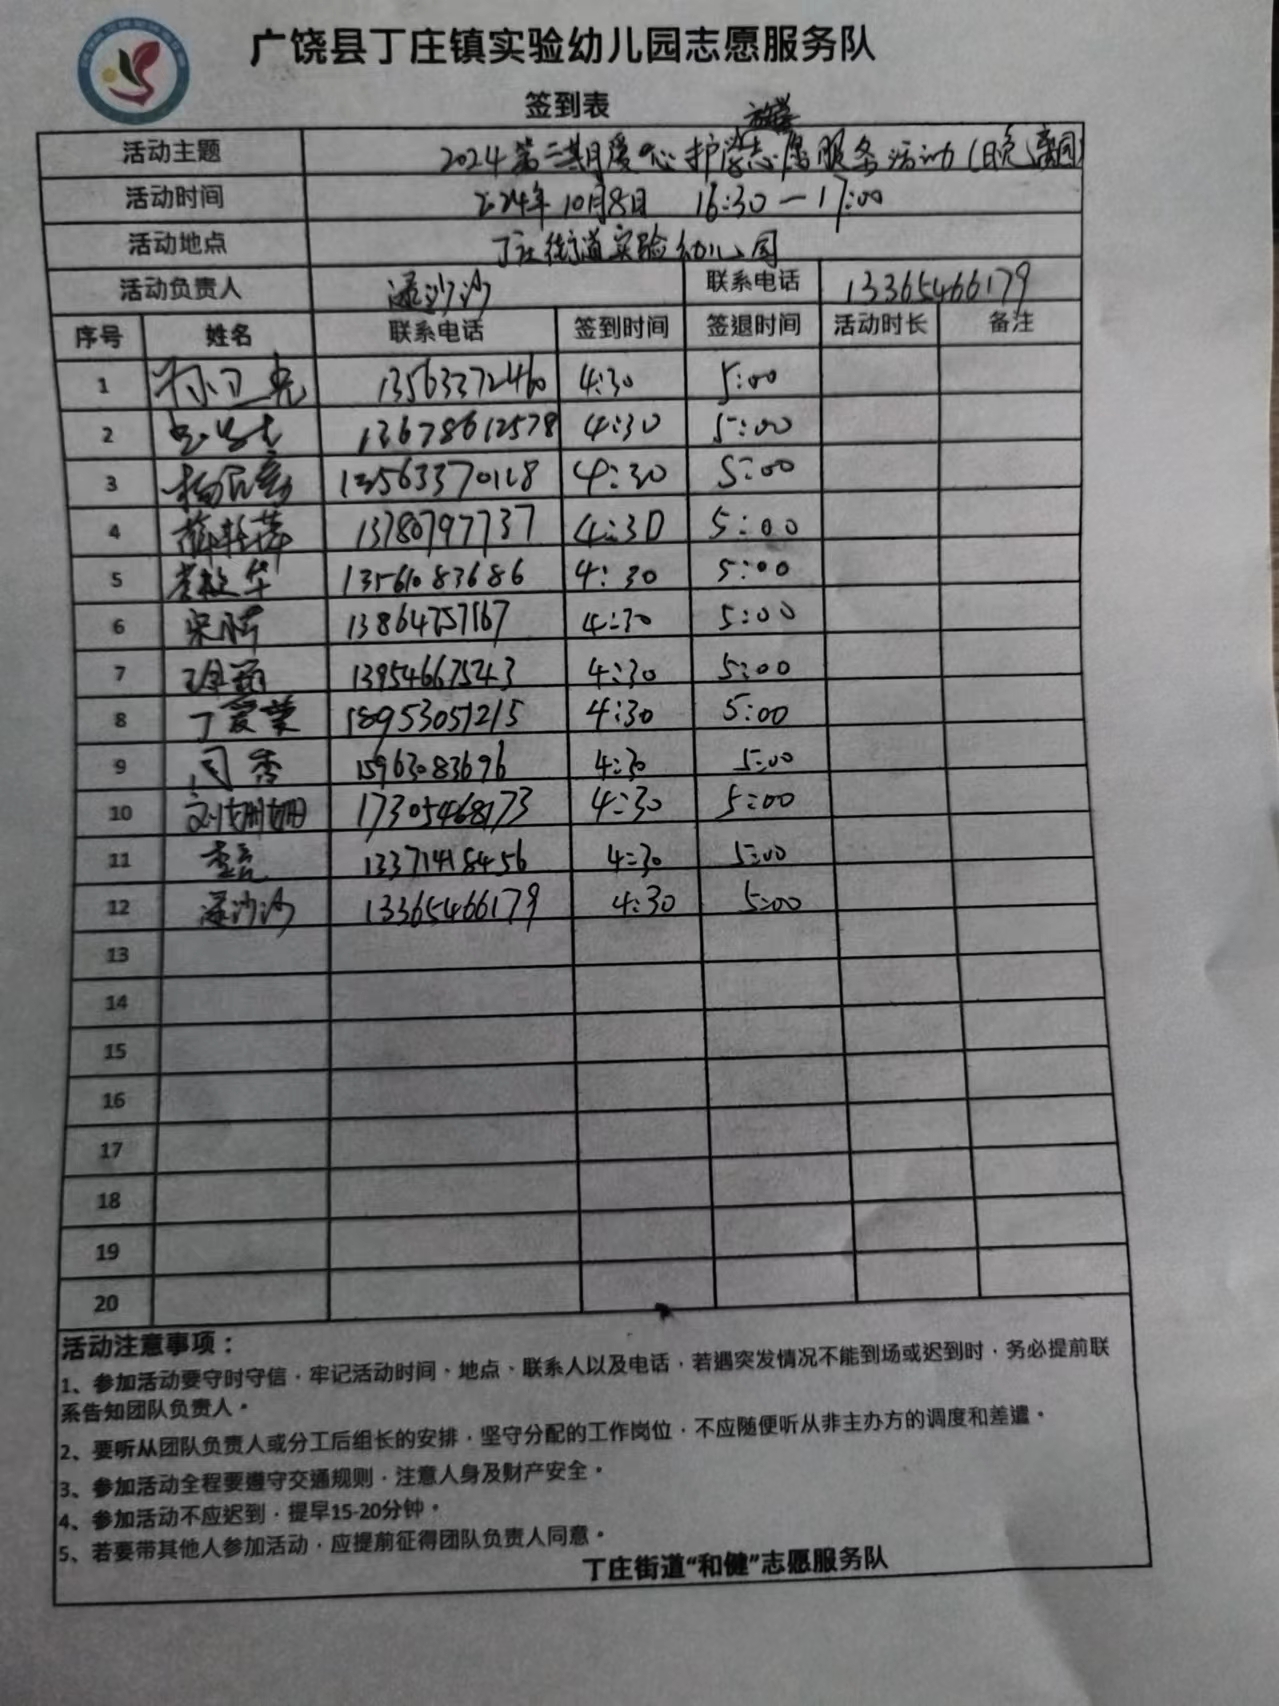 广饶县丁庄镇实验幼儿园志愿服务队
签到表
活动主题 2024第二期暖心护学志愿服务活动(晚离园)
活动时间 2024年10月8日 16:30—17:00
活动地点 丁庄街道实验幼儿园
活动负责人 沙沙 联系电话 13365466179
序号 姓名 联系电话 签到时间 签退时间 活动时长 备注
1 13563372460 4:30 5:00
2 13678612578 4:30 5:00
3 13563370118 4:30 5:00
4 13780797737 4:30 5:00
5 13561083686 4:30 5:00
6 13864757167 4:30 5:00
7 13954667543 4:30 5:00
8 丁爱 18953051215 4:30 5:00
9 闫香 15963083696 4:30 5:00
10 刘姗姗 17305468173 4:30 5:00
11 李亮 13371418456 4:30 5:00
12 沙沙 13365466179 4:30 5:00
13
14
15
16
17
18
19
20
活动注意事项:
1、参加活动要守时守信,牢记活动时间、地点、联系人以及电话,若遇突发情况不能到场或迟到时,务必提前联
系告知团队负责人。
2、要听从团队负责人或分工后组长的安排,坚守分配的工作岗位,不应随便听从非主办方的调度和差遣。
3、参加活动全程要遵守交通规则,注意人身及财产安全。
4、参加活动不应迟到,提早15-20分钟。
5、若要带其他人参加活动,应提前征得团队负责人同意。
丁庄街道“和健”志愿服务队